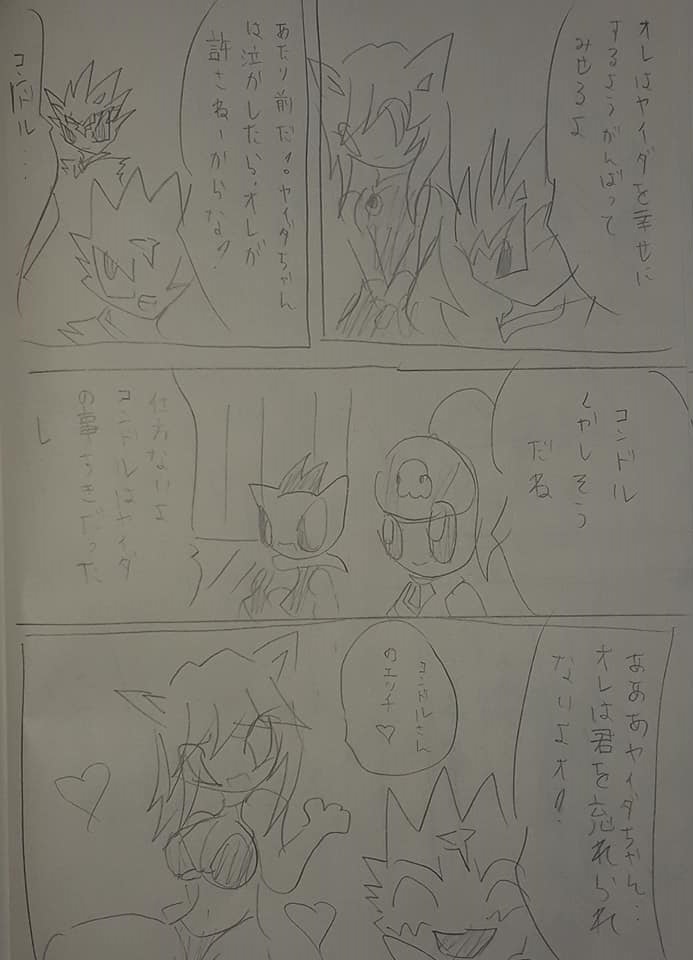 オレはヤイダを幸せに
するようがんばって
みせるよ
あたり前だ!。ヤイダちゃん
は泣かしたら、オレが
許さねーからな?
コンドル…
コンドル
くやしそう
だね
仕方ないよ
コンドルはヤイダ
の事すきだった
し
あああヤイダちゃん…
オレは君を忘れられ
ないよオ?
コンドルさん
のエッチ♡